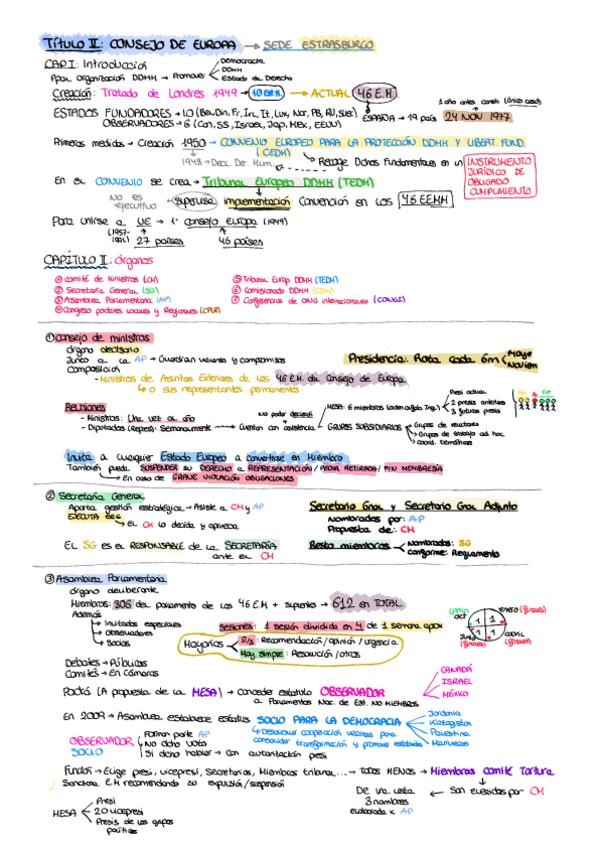 TÍTULO II: CONSEJO DE EUROPA → SEDE ESTRASBURGO
CAP I: Introducción
Ppal organización DDHH → Promover
Democracia
DDHH
Estado de Derecho
Creación: Tratado de Londres 1949 → 10 EE.M → ACTUAL 46 E.M
ESTADOS FUNDADORES → 10 (Be, Din, Fr, Irl, It, Lux, Nor, PB, RU, Sue)
OBSERVADORES → 6 (Can, SS, Israel, Jap, Mex, EEUU)
ESPAÑA → 19 país 24 NOV 1977
1 año antes constit (único caso)
Primeras medidas → Creación 1950 → CONVENIO EUROPEO PARA LA PROTECCIÓN DDHH Y LIBERT. FUND.
(CEDH)
1948 → Decl. Der. Hum.
Recoge Dchos Fundamentales en un INSTRUMENTO JURÍDICO DE OBLIGADO CUMPLIMIENTO
En el CONVENIO se crea → Tribunal Europeo DDHH (TEDH)
NO es ejecutivo ← supervisa implementación Convención en los 46 EEMM
Para unirse a UE → 1º Consejo Europa (1949)
27 países 46 países
CAPÍTULO II: Órganos
① Comité de Ministros (CM)
② Secretaría General (SG)
③ Asamblea Parlamentaria (AP)
④ Congreso poderes locales y Regionales (CPLR)
⑤ Tribunal Europ DDHH (TEDH)
⑥ Comisionado DDHH (CDH)
⑦ Conferencias de ONG internacionales (CONGI)
① Consejo de ministros
Órgano decisorio
Junto a la AP → Guardian valores y compromisos
Composición
- Ministros de Asuntos Exteriores de los 46 E.M de Consejo de Europa
↳ o sus representantes permanentes
Presidencia: Rota cada 6m
Mayo
Noviem
Reuniones
- Ministros: Una vez al año
- Diputados (Repres): Semanalmente → Cuentan con asistencia
No poder decisión
MESA: 6 miembros (orden alfab. Ing.)
Presi actual
2 presis anteriores
3 futuros presis
GRUPOS SUBSIDIARIOS
Grupos de relatores
Grupos de trabajo ad hoc
Coord. temáticos
Invita a cualquier Estado Europeo a convertirse en Miembro
También puede SUSPENDER su DERECHO a REPRESENTACIÓN / PEDIR RETIRADA / FIN MEMBRESÍA
↳ En caso de GRAVE VIOLACIÓN OBLIGACIONES
② Secretaría General
Aporta gestión estratégica → Asiste a CM y AP
↳ EL CM lo decide y aprueba
EL SG es el RESPONSABLE de la SECRETARÍA ante el CM
Secretario Gral y Secretario Gral Adjunto
Nombrados por: AP
Propuesta de: CM
Resto miembros
Nombrados: SG
Conforme: Reglamento
③ Asamblea Parlamentaria
Órgano deliberante
Miembros: 306 del parlamento de los 46 E.M + suplentes → 612 en TOTAL
Además
Invitados especiales
Observadores
Socios
Sesiones: 1 sesión dividida en 4 de 1 semana aprox
Mayorías
2/3: Recomendación / opinión / urgencia
May. simple: Resolución / otros
Debates → Públicos
Comités → En cámaras
Podrá (A propuesta de la MESA) → Conceder estatuto OBSERVADOR
a Parlamentos Nac. de Est. NO MIEMBROS
CANADÁ
ISRAEL
MÉXICO
En 2009 → Asamblea establece estatus SOCIO PARA LA DEMOCRACIA
↳ Desarrollar cooperación vecinos para consolidar transformación y promover estabilidad
Jordania
Kirguistán
Palestina
Marruecos
OBSERVADOR
SOCIO
Forman parte AP
No dcho voto
Sí dcho hablar → Con autorización presi
Función → Elige presi, vicepresi, Secretarios, Miembros tribunal... → TODOS MENOS → Miembros Comité Tortura
Sanciona E.M recomendando su expulsión/suspensión
De una lista 3 nombres elaborada x AP ← Son elegidos por CM
MESA
Presi
20 vicepresi
Presis de los grupos políticos